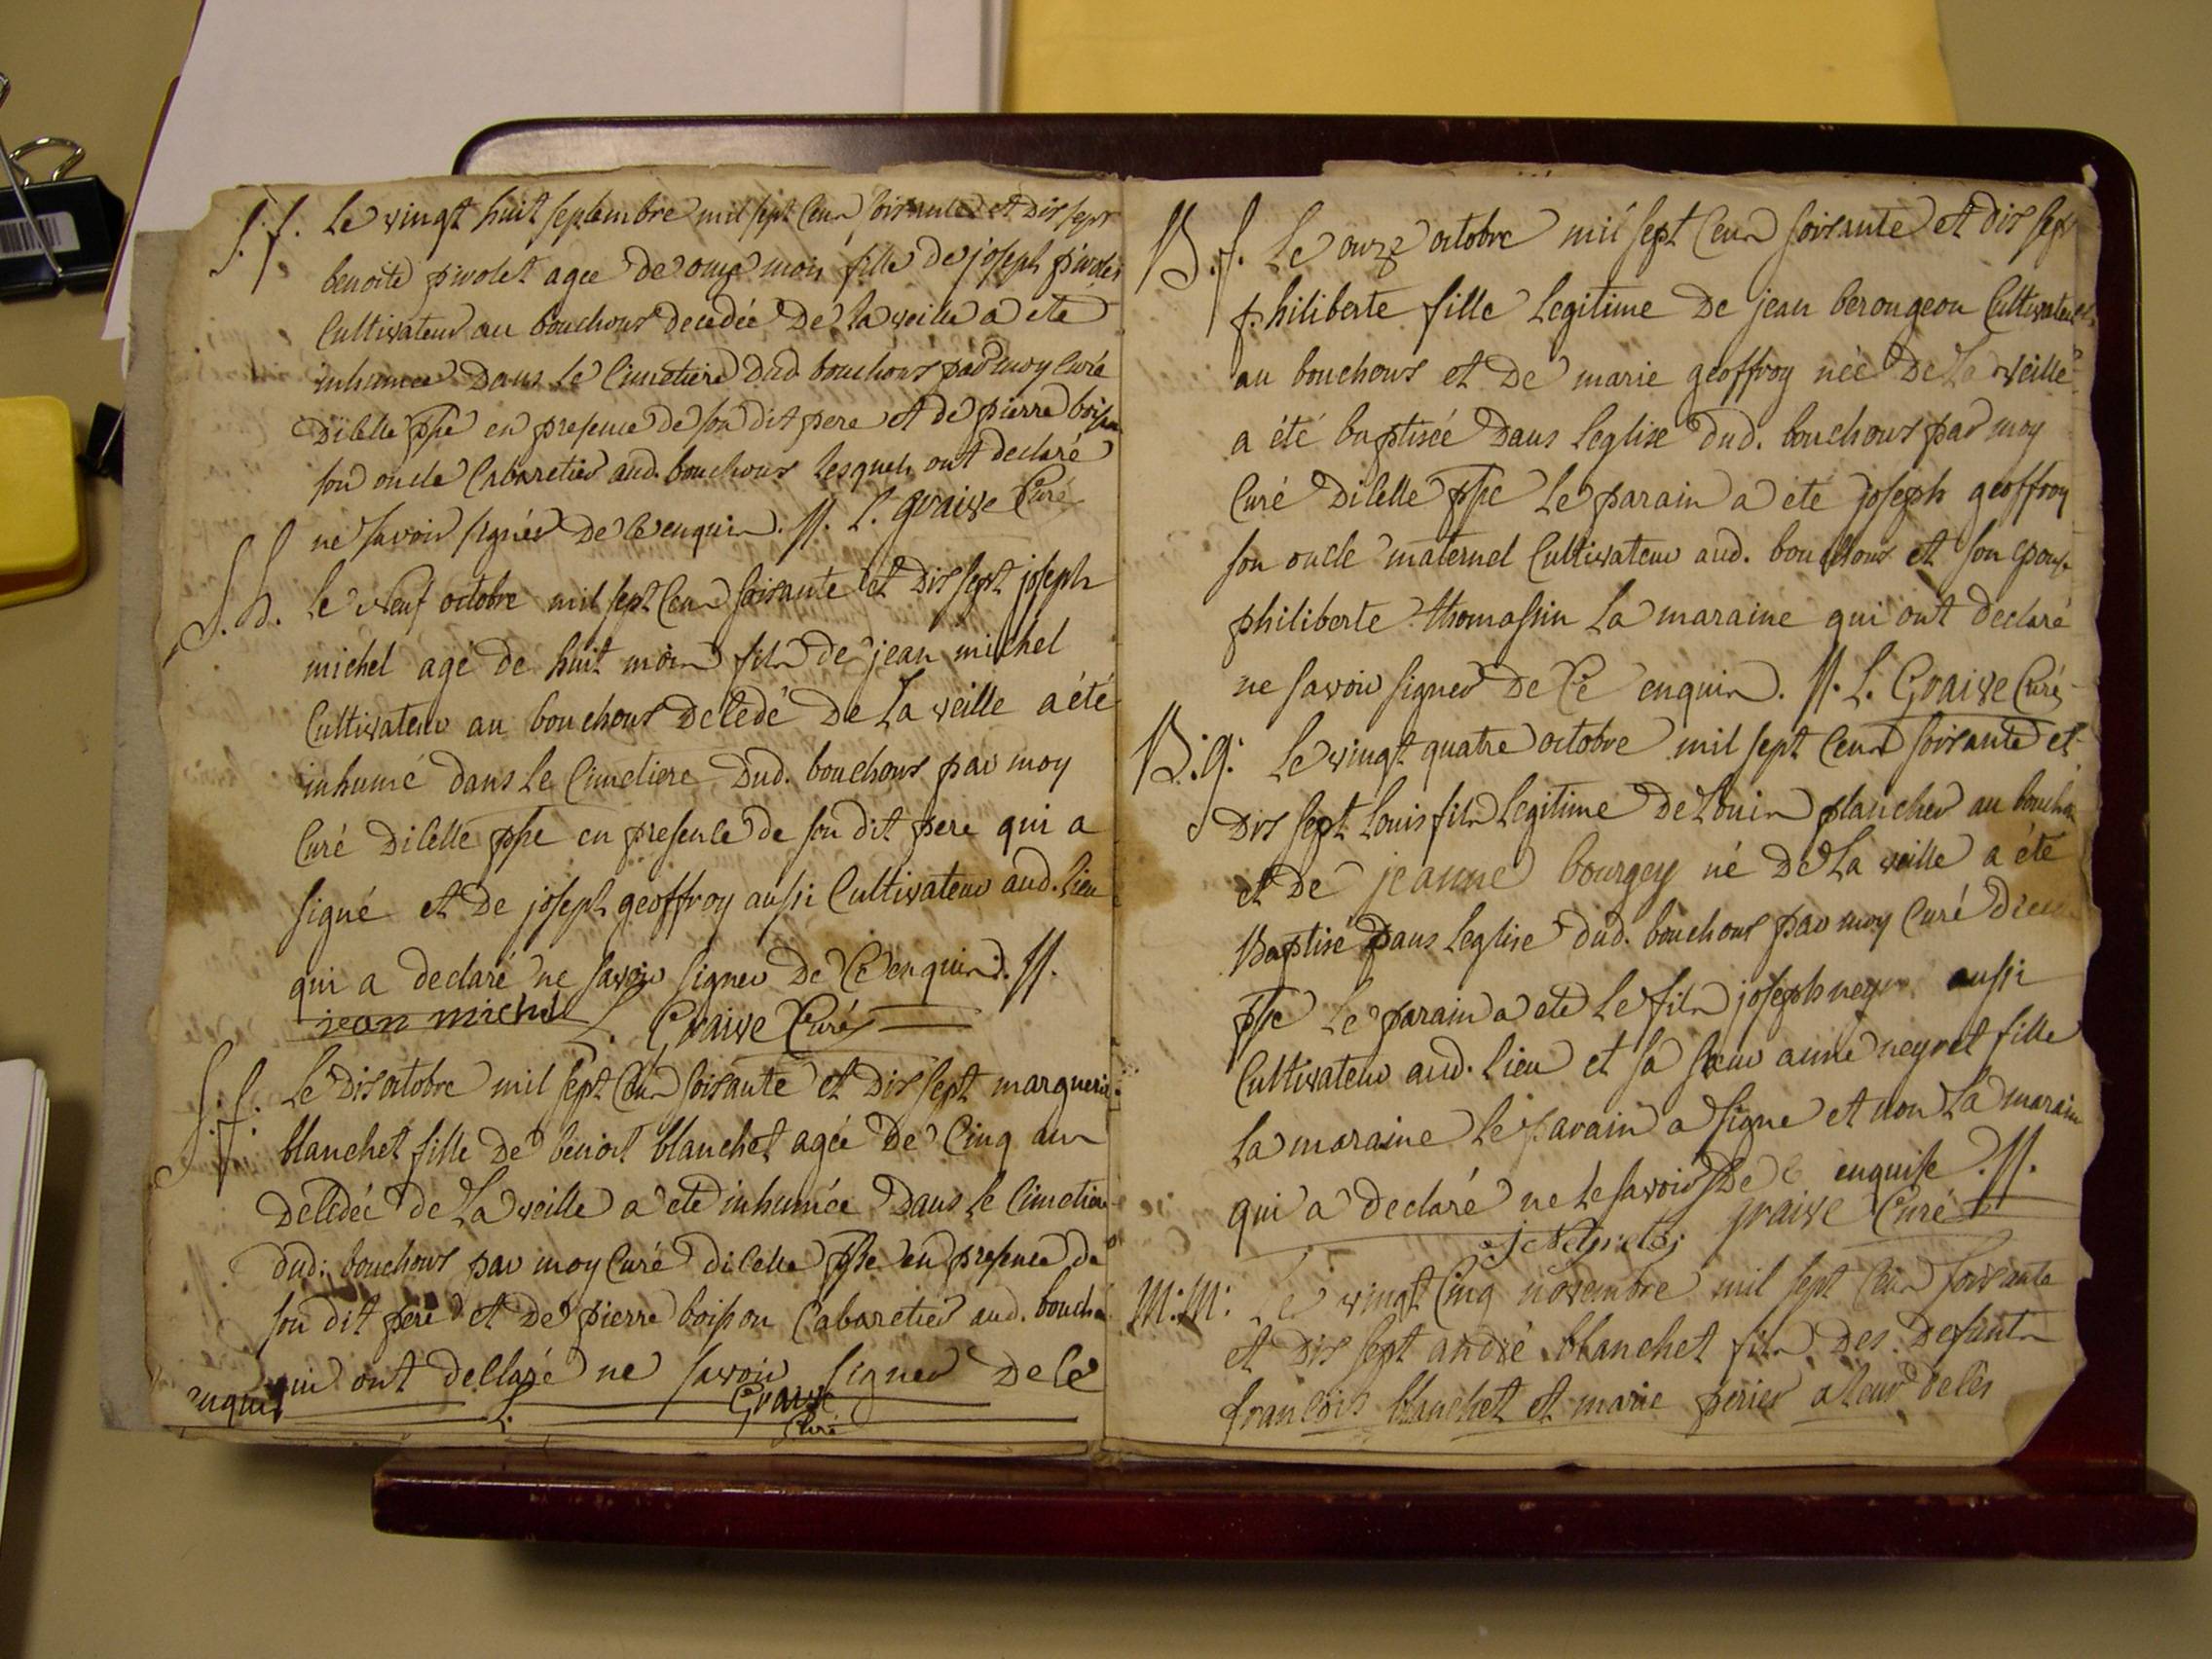 S. f. Le vingt huit septembre mil sept cens soixante et dix sept
benoite pivolet agée de onze mois fille de joseph pivolet
Cultivateur au bouchoux decedée de la veille a eté
inhumée dans le Cimetiere dud bouchoux par moy curé
dicelle psse en presence de son dit pere et de pierre boisson
son oncle Cabaretier aud. bouchoux lesquels ont declaré
ne savoir signer de ce enquis. //. L. graive Curé
S. h. le neuf octobre mil sept cens soixante et dix sept joseph
michel agé de huit mois fils de jean michel
Cultivateur au bouchoux decedé de la veille a été
inhumé dans le Cimetiere dud. bouchoux par moy
Curé dicelle psse en presence de son dit pere qui a
signé et de joseph geoffroy aussi Cultivateur aud. lieu
qui a declaré ne savoir signer de ce enquis. //.
jean michel L. Graive Curé
S. f. Le dix octobre mil sept cens soixante et dix sept marguerite
blanchet fille de benoit blanchet agée de cinq ans
decedée de la veille a eté inhumée dans le Cimetiere
dud. bouchoux par moy Curé dicelle psse en presence de
son dit pere et de pierre boisson Cabaretier aud. bouchoux
qui ont declaré ne savoir signer de ce
enquis L. Graive
Curé
B. f. Le onze octobre mil sept cens soixante et dix sept
philiberte fille legitime de jean berongeon Cultivateur
au bouchoux et de marie geoffroy née de la veille
a été baptisée dans leglise dud. bouchoux par moy
Curé dicelle psse le parain a eté joseph geoffroy
son oncle maternel Cultivateur aud. bouchoux et son epouse
philiberte thomassin la maraine qui ont declaré
ne savoir signer de ce enquis. //. L. Graive Curé
B. g. Le vingt quatre octobre mil sept cens soixante et
dix sept Louis fils legitime de Louis plancher au bouchoux
et de jeanne bourgey né de la veille a été
Baptisé dans leglise dud. bouchoux par moy Curé
psse le parain a eté le fils joseph aussi
Cultivateur aud. lieu et sa soeur anne neyret fille
la maraine le parain a signé et non la maraine
qui a declaré ne le savoir de enquise. //.
graive Curé
M. M. Le vingt cinq novembre mil sept cens soixante
et dix sept andré blanchet fils des defunts
francois blanchet et marie perier